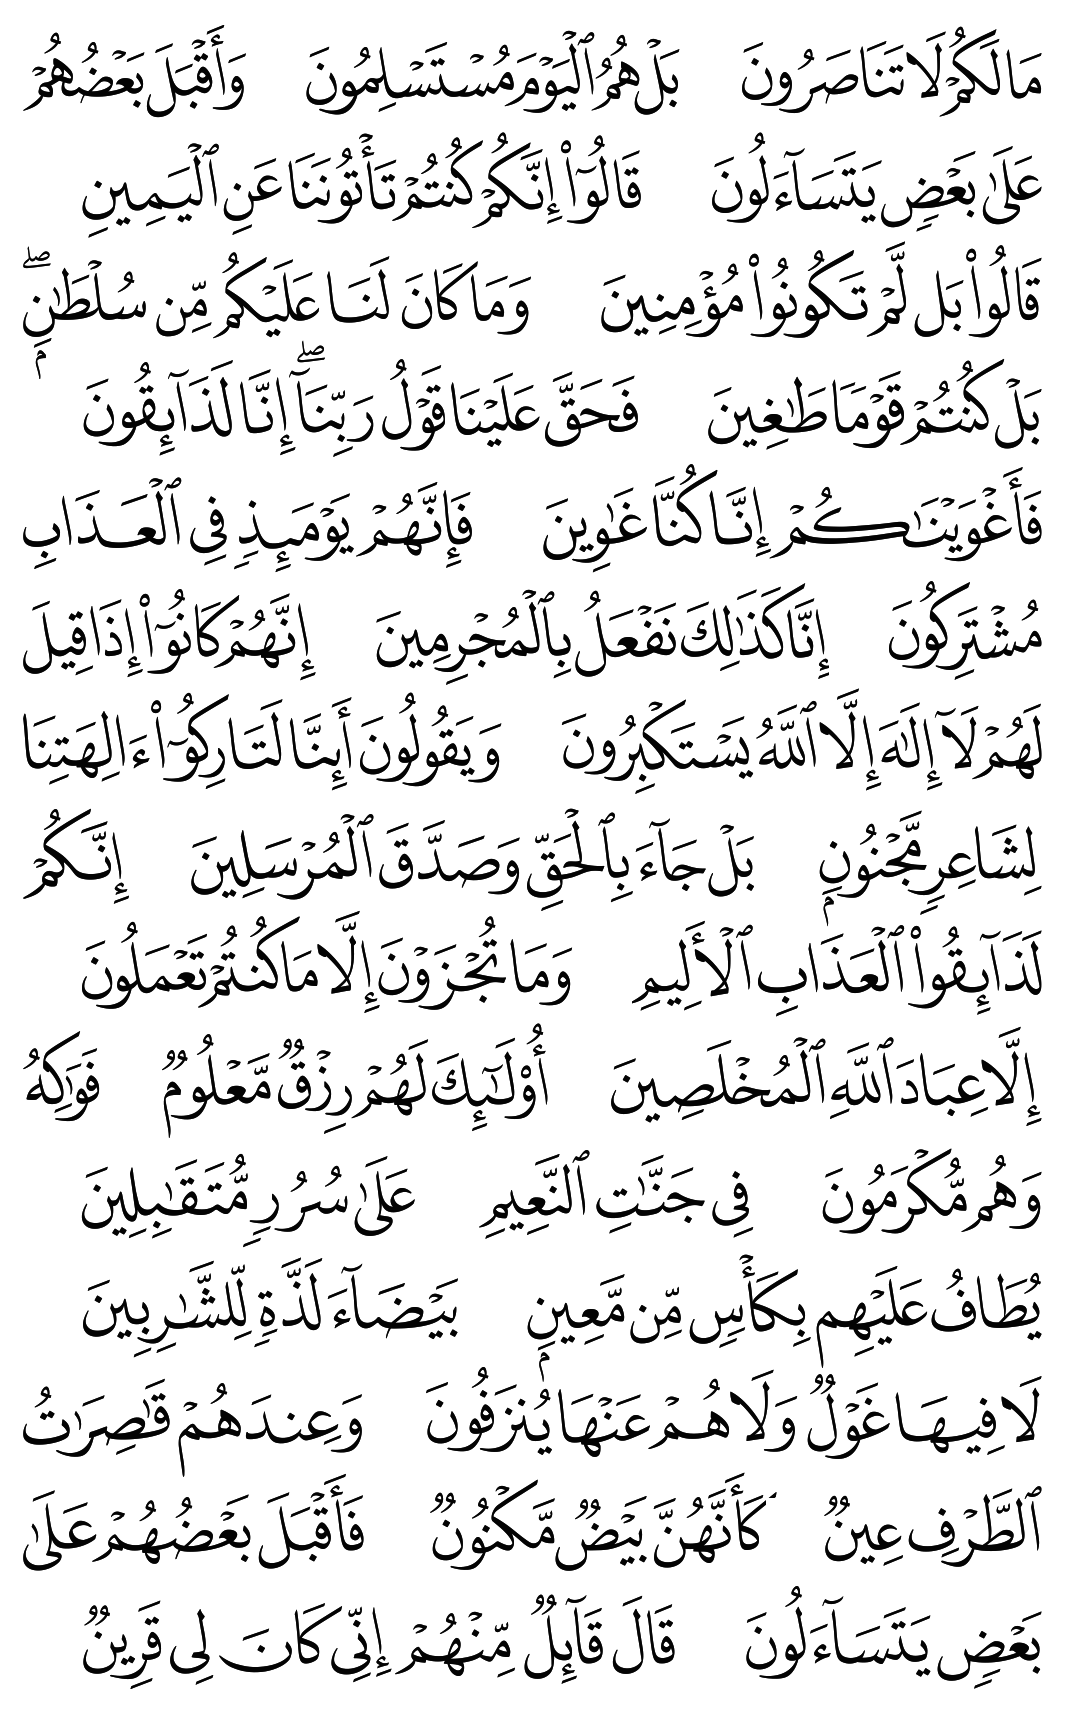 مَا لَكُمْ لَا تَنَاصَرُونَ بَلْ هُمُ ٱلْيَوْمَ مُسْتَسْلِمُونَ وَأَقْبَلَ بَعْضُهُمْ
عَلَىٰ بَعْضٍ يَتَسَآءَلُونَ قَالُوٓا۟ إِنَّكُمْ كُنتُمْ تَأْتُونَنَا عَنِ ٱلْيَمِينِ
قَالُوا۟ بَل لَّمْ تَكُونُوا۟ مُؤْمِنِينَ وَمَا كَانَ لَنَا عَلَيْكُم مِّن سُلْطَٰنٍۭ ۖ
بَلْ كُنتُمْ قَوْمًا طَٰغِينَ فَحَقَّ عَلَيْنَا قَوْلُ رَبِّنَآ ۖ إِنَّا لَذَآئِقُونَ
فَأَغْوَيْنَٰكُمْ إِنَّا كُنَّا غَٰوِينَ فَإِنَّهُمْ يَوْمَئِذٍ فِى ٱلْعَذَابِ
مُشْتَرِكُونَ إِنَّا كَذَٰلِكَ نَفْعَلُ بِٱلْمُجْرِمِينَ إِنَّهُمْ كَانُوٓا۟ إِذَا قِيلَ
لَهُمْ لَآ إِلَٰهَ إِلَّا ٱللَّهُ يَسْتَكْبِرُونَ وَيَقُولُونَ أَئِنَّا لَتَارِكُوٓا۟ ءَالِهَتِنَا
لِشَاعِرٍ مَّجْنُونٍۭ بَلْ جَآءَ بِٱلْحَقِّ وَصَدَّقَ ٱلْمُرْسَلِينَ إِنَّكُمْ
لَذَآئِقُوا۟ ٱلْعَذَابِ ٱلْأَلِيمِ وَمَا تُجْزَوْنَ إِلَّا مَا كُنتُمْ تَعْمَلُونَ
إِلَّا عِبَادَ ٱللَّهِ ٱلْمُخْلَصِينَ أُو۟لَٰٓئِكَ لَهُمْ رِزْقٌ مَّعْلُومٌ فَوَٰكِهُ
وَهُم مُّكْرَمُونَ فِى جَنَّٰتِ ٱلنَّعِيمِ عَلَىٰ سُرُرٍ مُّتَقَٰبِلِينَ
يُطَافُ عَلَيْهِم بِكَأْسٍ مِّن مَّعِينٍۭ بَيْضَآءَ لَذَّةٍ لِّلشَّٰرِبِينَ
لَا فِيهَا غَوْلٌ وَلَا هُمْ عَنْهَا يُنزَفُونَ وَعِندَهُمْ قَٰصِرَٰتُ
ٱلطَّرْفِ عِينٌ كَأَنَّهُنَّ بَيْضٌ مَّكْنُونٌ فَأَقْبَلَ بَعْضُهُمْ عَلَىٰ
بَعْضٍ يَتَسَآءَلُونَ قَالَ قَآئِلٌ مِّنْهُمْ إِنِّى كَانَ لِى قَرِينٌ